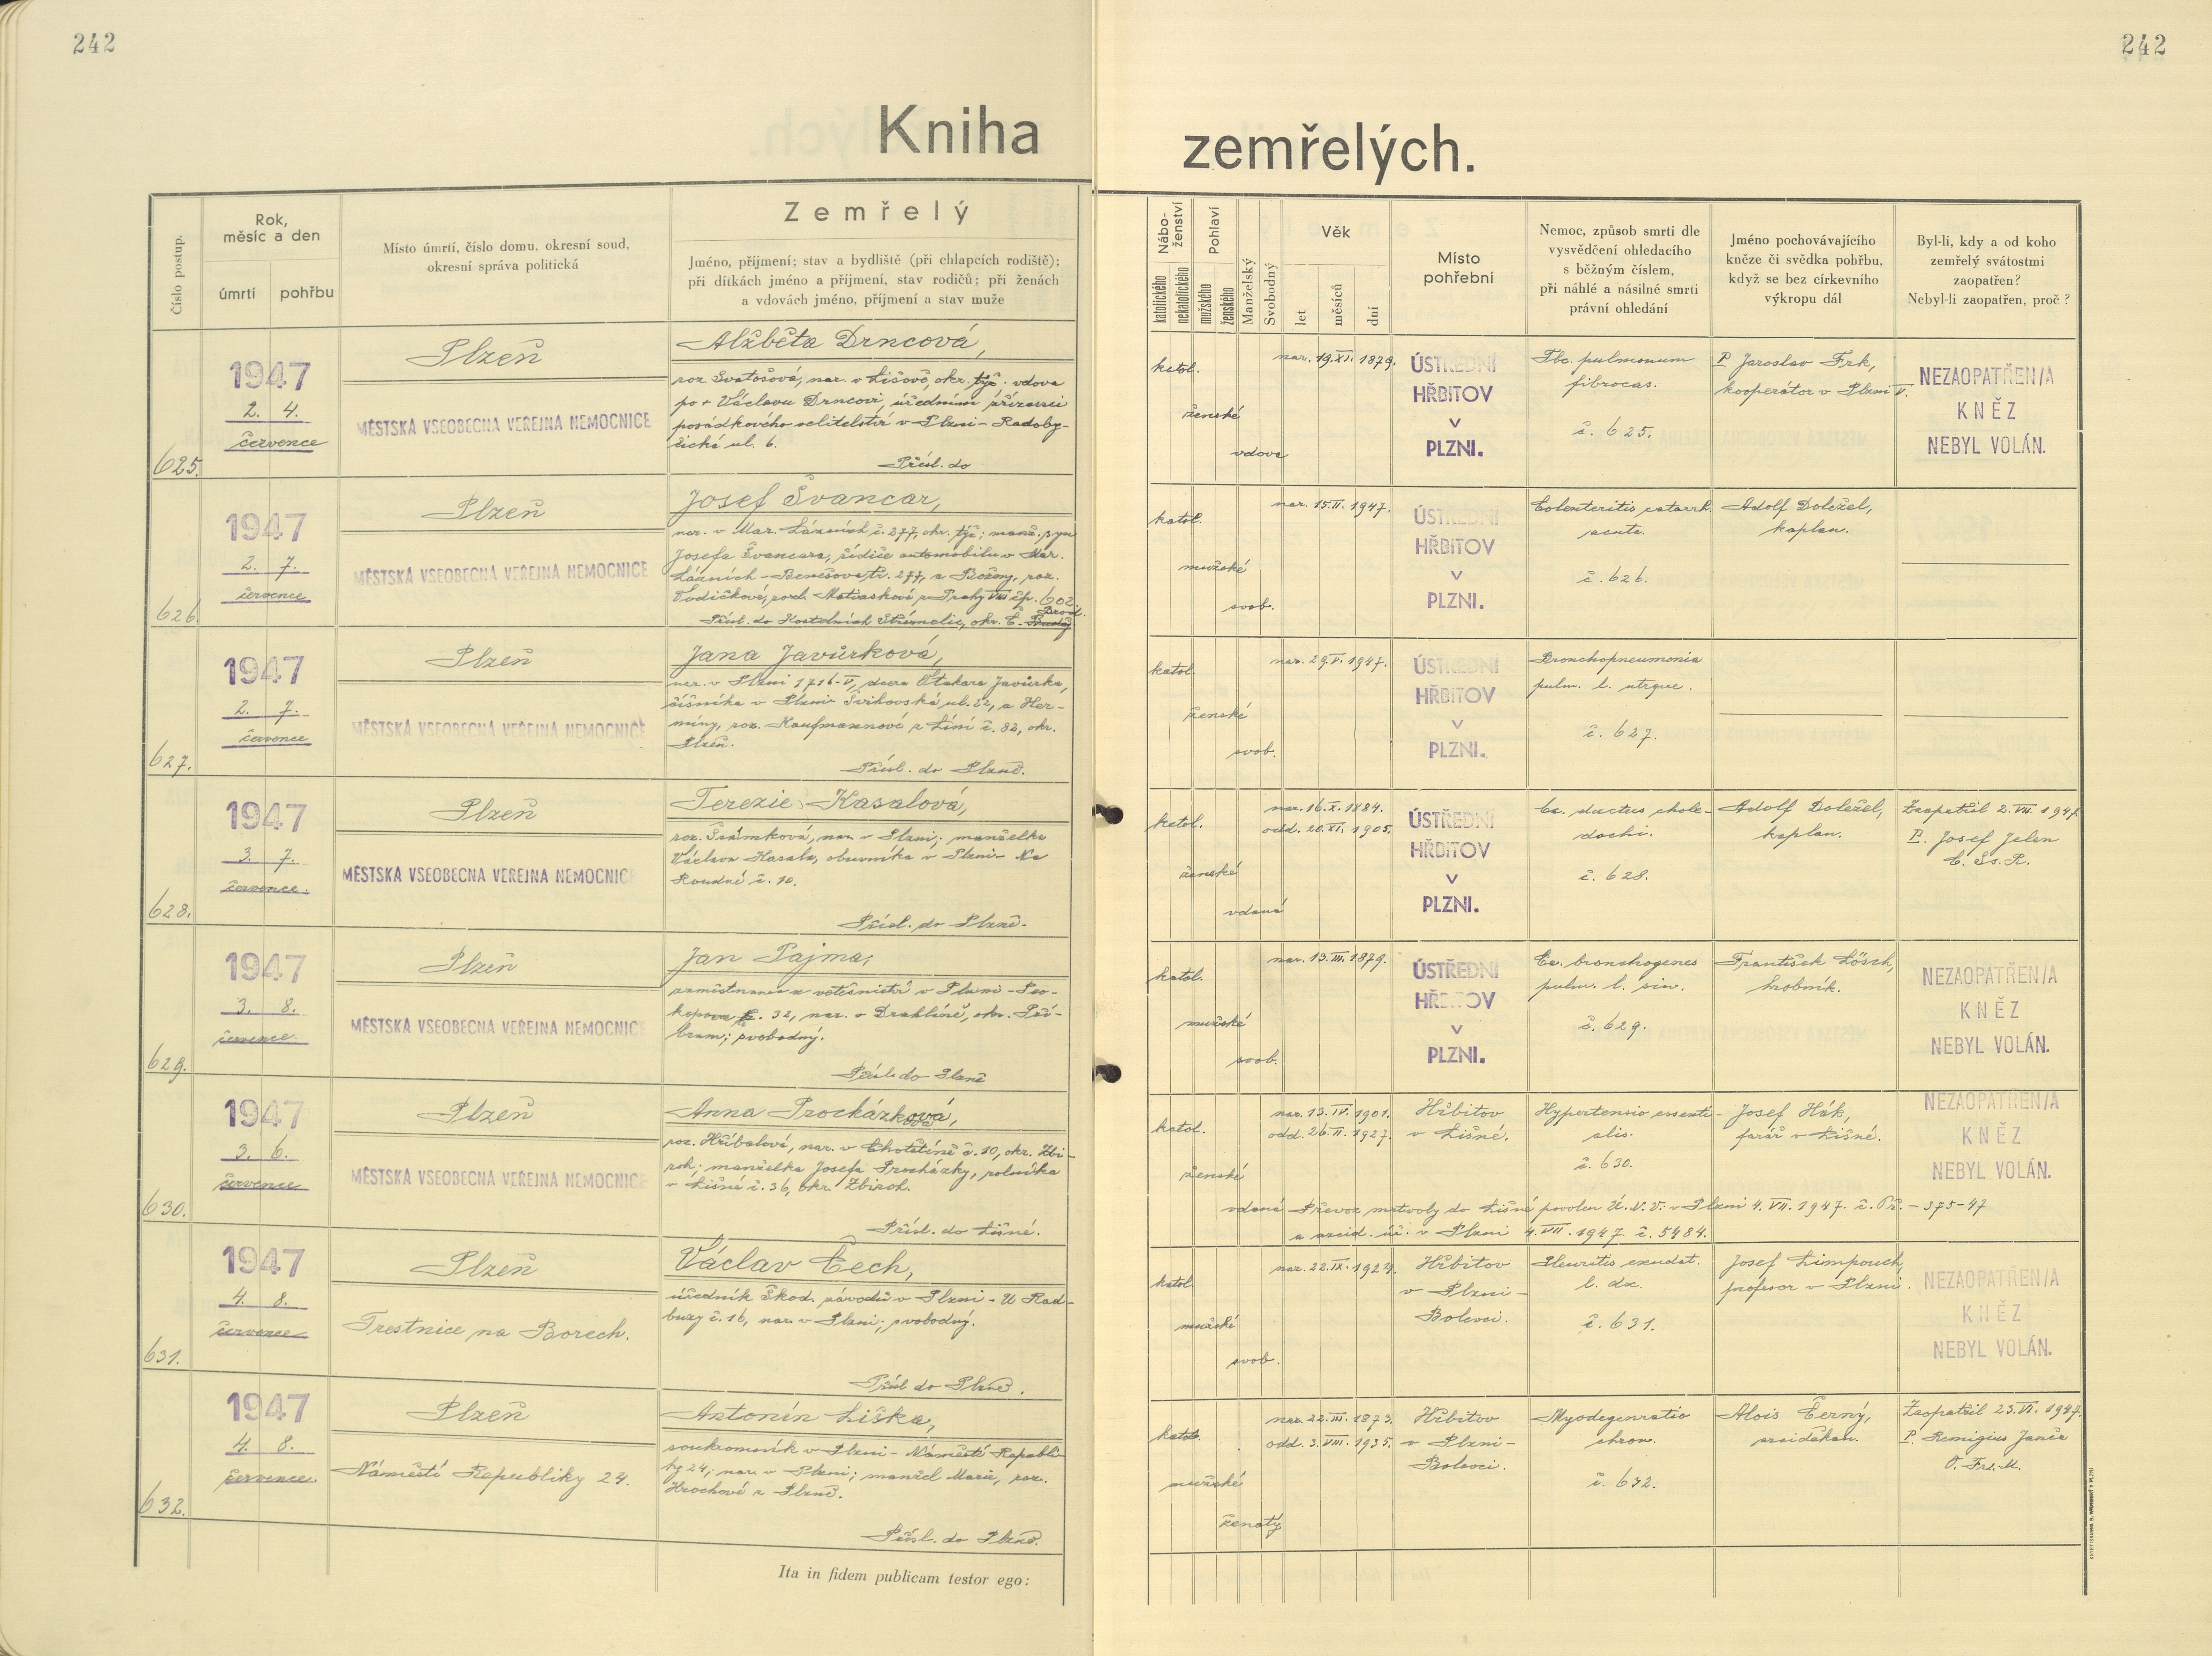 242
242
Kniha zemřelých.
Číslo postup.
Rok, měsíc a den
úmrtí
pohřbu
Místo úmrtí, číslo domu, okresní soud,
okresní správa politická
Zemřelý
Jméno, příjmení; stav a bydliště (při chlapcích rodiště);
při dítkách jméno a příjmení, stav rodičů; při ženách
a vdovách jméno, příjmení a stav muže
Nábo-
ženství
katolického
nekatolického
Pohlaví
mužského
ženského
Manželský
Svobodný
Věk
let
měsíců
dní
Místo
pohřební
Nemoc, způsob smrti dle
vysvědčení ohledacího
s běžným číslem,
při náhlé a násilné smrti
právní ohledání
Jméno pochovávajícího
kněze či svědka pohřbu,
když se bez církevního
výkropu dál
Byl-li, kdy a od koho
zemřelý svátostmi
zaopatřen?
Nebyl-li zaopatřen, proč?
625.
1947
2. 4.
července
Plzeň
MĚSTSKÁ VŠEOBECNÁ VEŘEJNÁ NEMOCNICE
Alžběta Drncová,
roz. Svatošová, nar. v Lišově, okr. týž. vdova
po + Václavu Drncovi, úředním zřízenci
posádkového velitelství v Plzni - Radoby-
čická ul. 6.
Přísl. do
katol.
ženské
vdova
nar. 19.XI. 1879.
ÚSTŘEDNÍ
HŘBITOV
V
PLZNI.
Tbc. pulmonum
fibrocas.
č. 625.
P. Jaroslav Frk,
kooperátor v Plzni V.
NEZAOPATŘEN/A
KNĚZ
NEBYL VOLÁN.
626.
1947
2. 7.
července
Plzeň
MĚSTSKÁ VŠEOBECNÁ VEŘEJNÁ NEMOCNICE
Josef Švancar,
nar. v Mar. Lázních č. 277, okr. týž; manž. syn
Josefa Švancara, řidiče automobilu v Mar.
Lázních - Benešova tř. 277, a Boženy, roz.
Vodičkové, z Prahy VIII čp. 602.
Přísl. do Kostelních Střímelic, okr. Č. Brod.
katol.
mužské
svob.
nar. 15.II. 1947.
ÚSTŘEDNÍ
HŘBITOV
V
PLZNI.
Colenteritis catarrh.
acuta.
č. 626.
Adolf Doležel,
kaplan.
627.
1947
2. 7.
července
Plzeň
MĚSTSKÁ VŠEOBECNÁ VEŘEJNÁ NEMOCNICE
Jana Javůrková,
nar. v Plzni 1716-V, dcera Otakara Javůrka,
číšníka v Plzni Švihovská ul. 22, a Her-
míny, roz. Kaufmannové z Líní č. 82, okr.
Plzeň.
Přísl. do Plzně.
katol.
ženské
svob.
nar. 29.V. 1947.
ÚSTŘEDNÍ
HŘBITOV
V
PLZNI.
Bronchopneumonia
pulm. l. utrque.
č. 627.
628.
1947
3. 7.
července.
Plzeň
MĚSTSKÁ VŠEOBECNÁ VEŘEJNÁ NEMOCNICE
Terezie Kasalová,
roz. Šrámková, nar. v Plzni; manželka
Václava Kasala, obuvníka v Plzni - Na
Roudné č. 10.
Přísl. do Plzně.
katol.
ženské
vdaná
nar. 16.X. 1884.
odd. 20.XI. 1905.
ÚSTŘEDNÍ
HŘBITOV
V
PLZNI.
Ca. ductus chole-
dochi.
č. 628.
Adolf Doležel,
kaplan.
Zaopatřil 2.VII. 1947.
P. Josef Jelen
C. Ss. R.
629.
1947
3. 8.
července.
Plzeň
MĚSTSKÁ VŠEOBECNÁ VEŘEJNÁ NEMOCNICE
Jan Pajma,
zaměstnanec vetešnictví v Plzni - Pro-
kopova č. 32, nar. v Drahlíně, okr. Pří-
bram; svobodný.
Přísl. do Plzně
katol.
mužské
svob.
nar. 13.III. 1879.
ÚSTŘEDNÍ
HŘBITOV
V
PLZNI.
Ca. bronchogenes
pulm. l. sin.
č. 629.
František Lösch,
hrobník.
NEZAOPATŘEN/A
KNĚZ
NEBYL VOLÁN.
630.
1947
3. 6.
července
Plzeň
MĚSTSKÁ VŠEOBECNÁ VEŘEJNÁ NEMOCNICE
Anna Procházková,
roz. Hříbalová, nar. v Chotětíně č. 10, okr. Zbi-
roh; manželka Josefa Procházky, rolníka
v Lišné č. 36, okr. Zbiroh.
Přísl. do Lišné.
katol.
ženské
vdaná
nar. 13.IV. 1901.
odd. 26.II. 1927.
Hřbitov
v Lišné.
Hypertensio essenti-
alis.
č. 630.
Josef Hák,
farář v Lišné.
NEZAOPATŘEN/A
KNĚZ
NEBYL VOLÁN.
Převoz mrtvoly do Lišné povolen Ú. N. V. v Plzni 4. VII. 1947. č. Př. - 375-47
a arcid. úř. v Plzni 4. VII. 1947. č. 5484.
631.
1947
4. 8.
července
Plzeň
Trestnice na Borech.
Václav Čech,
úředník Škod. závodů v Plzni - U Rad-
buzy č. 16, nar. v Plzni; svobodný.
Přísl. do Plzně.
katol.
mužské
svob.
nar. 22.IX. 1924.
Hřbitov
v Plzni -
Bolevci.
Pleuritis exudat.
l. dx.
č. 631.
Josef Limpouch,
profesor v Plzni.
NEZAOPATŘEN/A
KNĚZ
NEBYL VOLÁN.
632.
1947
4. 8.
července.
Plzeň
Náměstí Republiky 24.
Antonín Liška,
soukromník v Plzni - Náměstí Republi-
ky 24; nar. v Plzni; manžel Marie, roz.
Hrochové z Plzně.
Přísl. do Plzně.
katol.
mužské
ženatý
nar. 22.III. 1873.
odd. 3.VIII. 1935.
Hřbitov
v Plzni -
Bolevci.
Myodegenratio
chron.
č. 632.
Alois Černý,
arciděkan.
Zaopatřil 23.VI. 1947.
P. Remigius Janča
O. Fr. M.
Ita in fidem publicam testor ego: